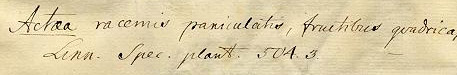 Actæa racemis paniculatis, fructibus quadrica,
Linn. Spec. plant. 504. 3.